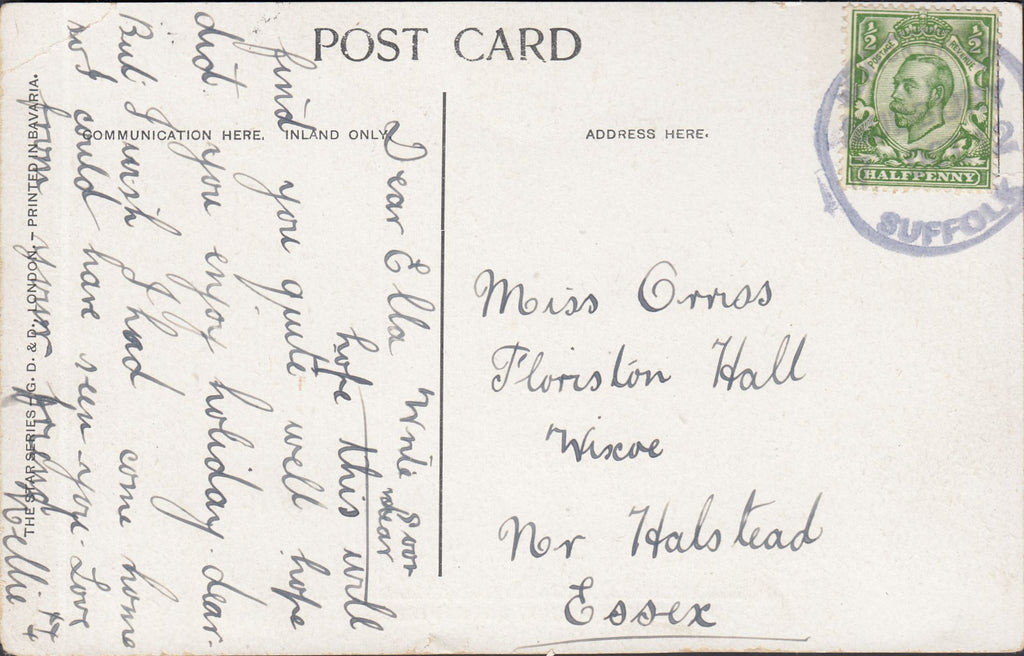 POST CARD
COMMUNICATION HERE. INLAND ONLY.
ADDRESS HERE.
THE STAR SERIES - G. D. & D., LONDON. - PRINTED IN BAVARIA.
½ ½
POSTAGE REVENUE
HALFPENNY
SUFFOLK
Miss Orriss
Floriston Hall
Wixoe
Nr Halstead
Essex
Dear Ella Write soon
dear
hope this will
find you quite well hope
did you enjoy holiday dear.
But I wish I had come home
so I could have seen you. Love
from your friend Nellie